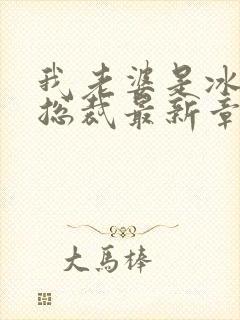 我老婆是冰
总裁最新章
大马棒